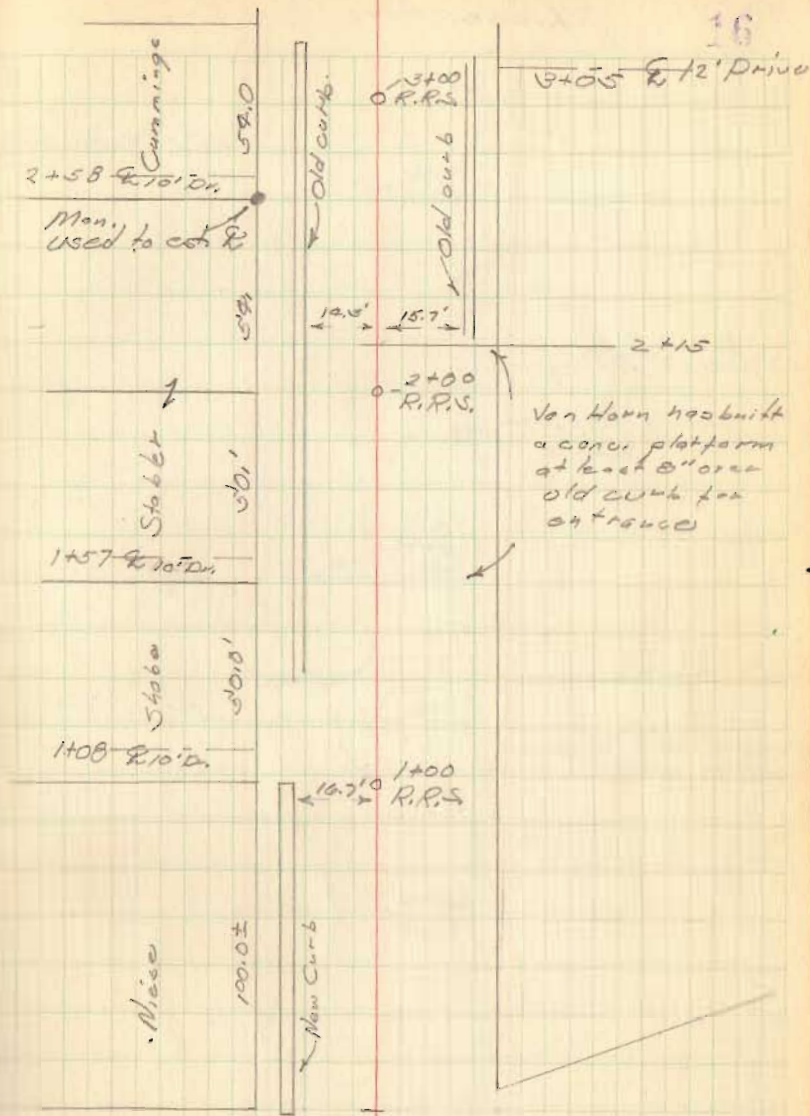 16
Cummings
54.0
Old curb.
3+00
R.R.S.
Old curb
3+05 ℄ 12' Drive
2+58 ℄ 10' Dr.
Mon.
used to est ℄
54
14.8'
15.7'
2+15
2+00
R.R.S.
Van Horn has built
a conc. platform
at least 8" over
old curb for
entrance
Stabler
50.'
1+57 ℄ 10' Dr.
50.0'
1+08 ℄ 10' Dr.
16.7'
1+00
R.R.S.
Niese
100.0±
New Curb